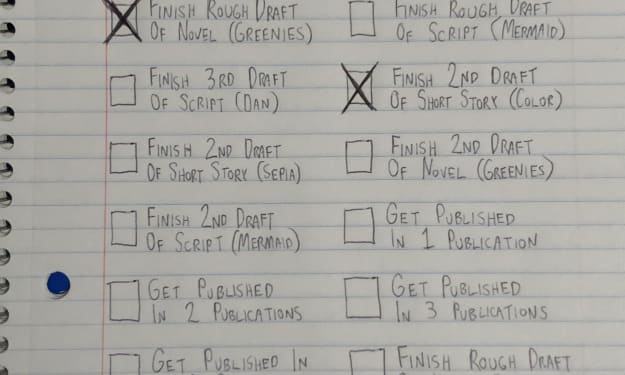 Finish Rough Draft
Of Novel (Greenies)
Finish Rough Draft
Of Script (Mermaid)
Finish 3rd Draft
Of Script (Dan)
Finish 2nd Draft
Of Short Story (Color)
Finish 2nd Draft
Of Short Story (Sepia)
Finish 2nd Draft
Of Novel (Greenies)
Finish 2nd Draft
Of Script (Mermaid)
Get Published
In 1 Publication
Get Published
In 2 Publications
Get Published
In 3 Publications
Get Published In
Finish Rough Draft